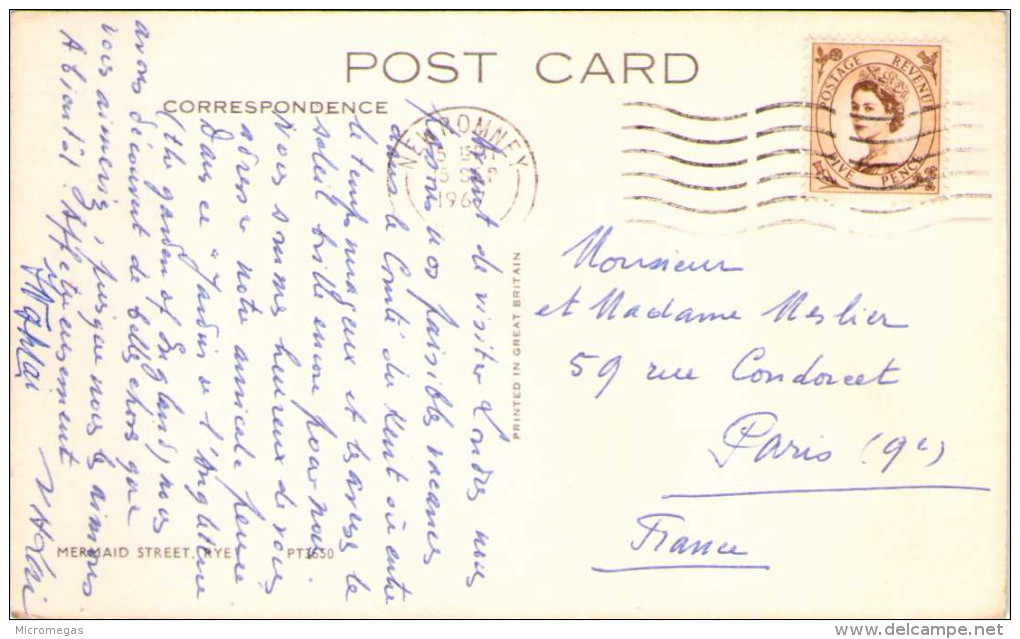 POST CARD
CORRESPONDENCE
NEW ROMNEY
196
POSTAGE REVENUE
FIVE PENCE
Avant de visiter Londres nous
passons nos paisibles vacances
dans le Comté du Kent où entre
le temps nuageux et l'averse le
soleil brille encore pour nous
Nous sommes heureux de vous
adresser notre amicale pensée
Dans ce "Jardin de l'Angleterre
(the garden of England) nous
avons découvert de belles choses que
vous aimeriez, puisque nous les aimons
A bientôt. Affectueusement
PRINTED IN GREAT BRITAIN
Monsieur
et Madame Meslier
59 rue Condorcet
Paris (9e)
France
MERMAID STREET, RYE PT3650
Micromegas